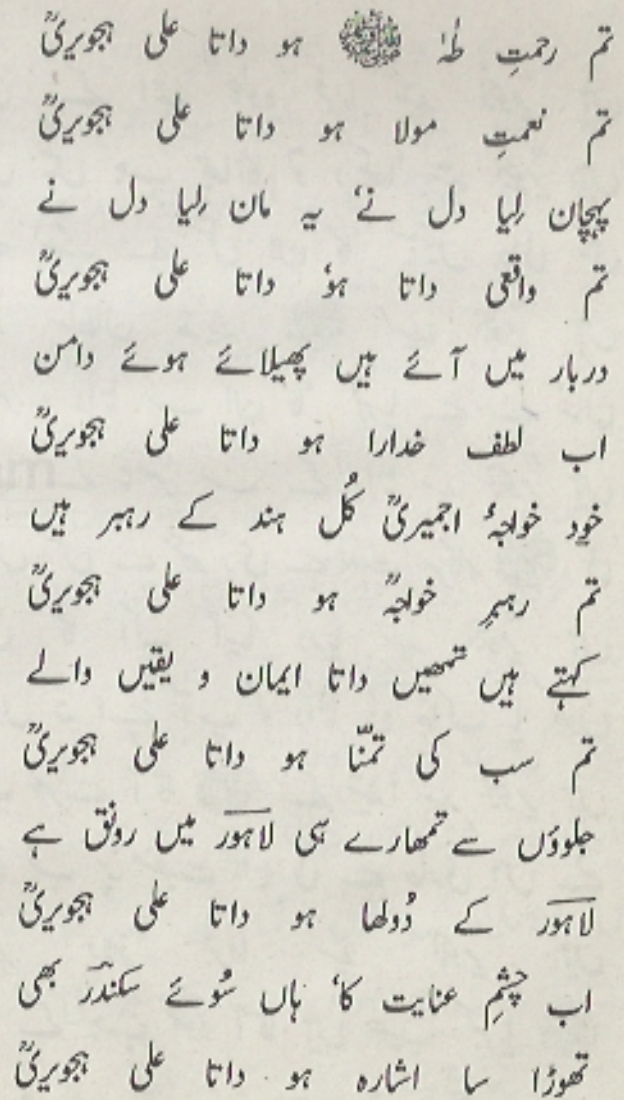 تم رحمتِ طٰہٰ ﷺ ہو داتا علی ہجویریؒ
تم نعمتِ مولا ہو داتا علی ہجویریؒ
پہچان لِیا دل نے، یہ مان لِیا دل نے
تم واقعی داتا ہو، داتا علی ہجویریؒ
دربار میں آئے ہیں پھیلائے ہوئے دامن
اب لطف خدارا ہو داتا علی ہجویریؒ
خود خواجۂ اجمیریؒ کُل ہند کے رہبر ہیں
تم رہبرِ خواجہؒ ہو داتا علی ہجویریؒ
کہتے ہیں تمھیں داتا ایمان و یقیں والے
تم سب کی تمنّا ہو داتا علی ہجویریؒ
جلوؤں سے تمھارے ہی لاہور میں رونق ہے
لاہور کے دُولھا ہو داتا علی ہجویریؒ
اب چشمِ عنایت کا، ہاں سُوئے سکندؔر بھی
تھوڑا سا اشارہ ہو داتا علی ہجویریؒ